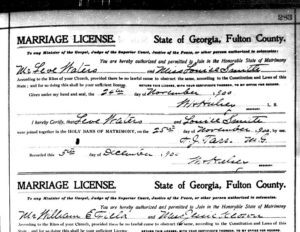 283
MARRIAGE LICENSE. State of Georgia, Fulton County.
To any Minister of the Gospel, Judge of the Superior Court, Justice of the Peace, or other person authorized to solemnize:
You are hereby authorized and permitted to Join in the Honorable State of Matrimony
Mr Steve Waters and Miss Louise Smith
According to the Rites of your Church, provided there be no lawful cause to obstruct the same, according to the Constitution and Laws of this
State; and for so doing this shall be your sufficient
Given under my hand and seal, the 24th day of November 1900
L. S.
I hereby Certify, that Steve Waters and Louise Smith
were joined together in the HOLY BANS OF MATRIMONY, on the 25th day of November 1900 by me.
M.G.
Recorded this 5th day of December 190
MARRIAGE LICENSE. State of Georgia, Fulton County.
To any Minister of the Gospel, Judge of the Superior Court, Justice of the Peace, or other person authorized to solemnize:
You are hereby authorized and permitted to Join in the Honorable State of Matrimony
Mr William E and
According to the Rites of your Church, provided there be no lawful cause to obstruct the same, according to the Constitution and Laws of this